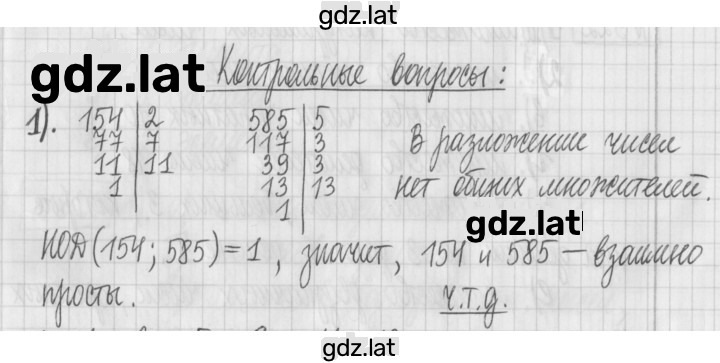 gdz.lat
gdz.lat Контрольные вопросы:
1). 154 | 2 585 | 5
77 | 7 117 | 3 В разложение чисел
11 | 11 39 | 3 нет общих множителей.
1 13 | 13
1
gdz.lat
НОД(154; 585) = 1, значит, 154 и 585 — взаимно
просты. ч.т.д.
gdz.lat